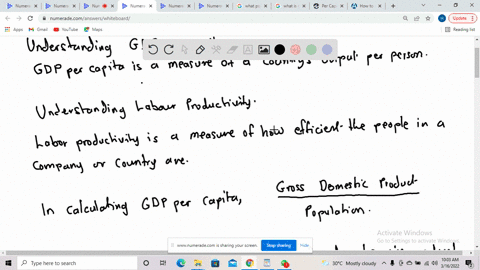 Numer
Numer
Numer
Numer
Numer
what
what is
Per Cap
New In
numerade.com/answers/whiteboard/
Update
Gmail
YouTube
Maps
Reading list
Understanding
GDP per capita is a measure of a Country's output per person.
Understanding Labour Productivity.
Labor productivity is a measure of how efficient the people in a
Company or Country are.
In calculating GDP per capita,
Gross Domestic Product
Population.
Activate Windows
Go to Settings to activate Windows.
www.numerade.com is sharing your screen.
Stop sharing
Hide
Type here to search
30°C Mostly cloudy
10:03 AM
3/16/2022